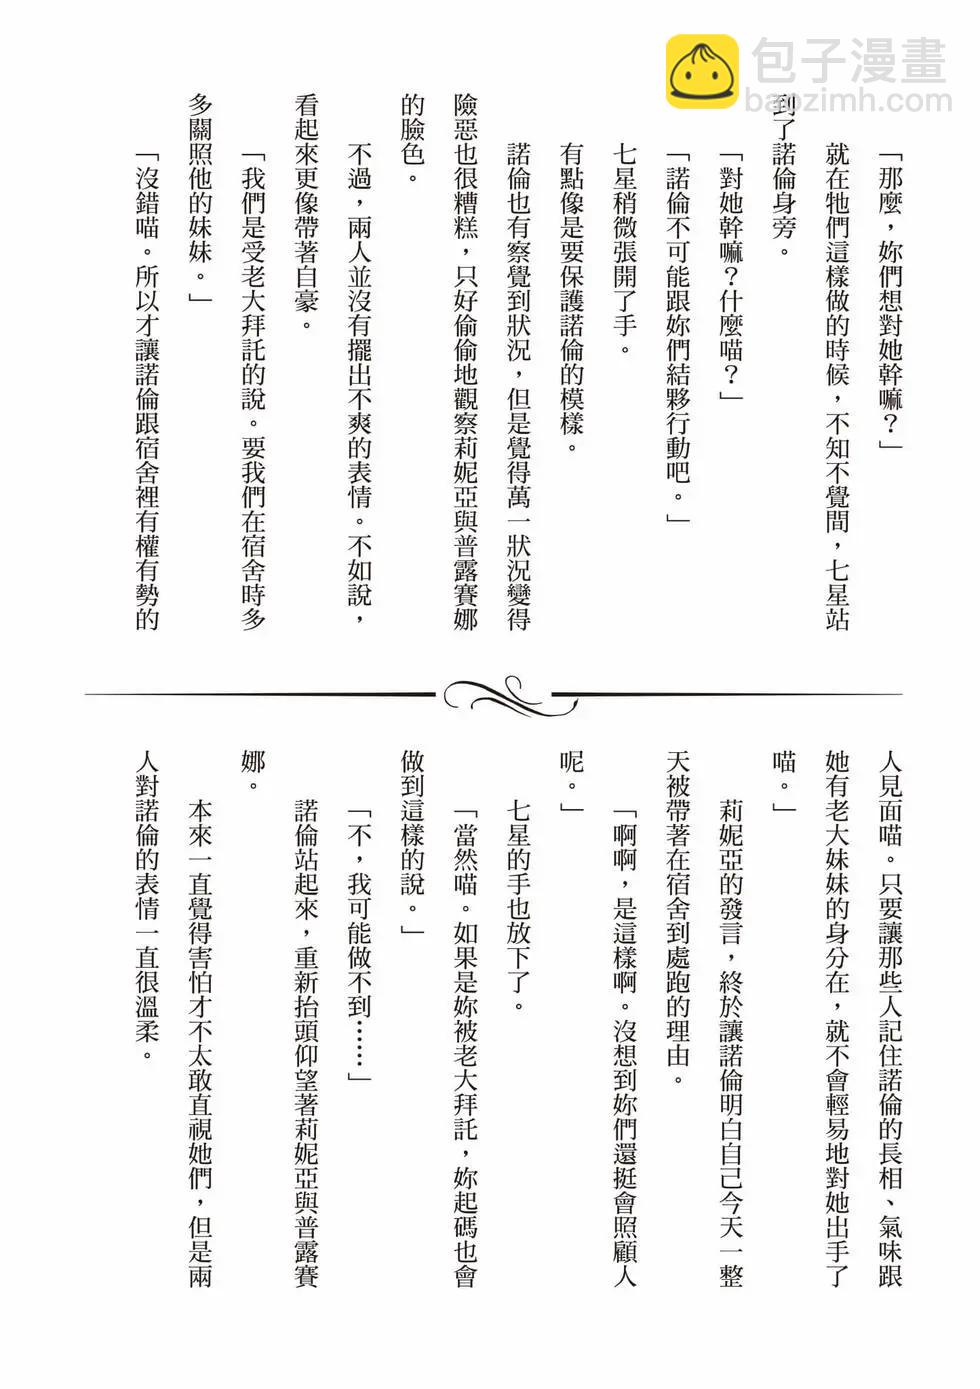 包子漫畫
baozimh.com
「那麼，妳們想對她幹嘛？」
就在牠們這樣做的時候，不知不覺間，七星站
到了諾倫身旁。
「對她幹嘛？什麼喵？」
「諾倫不可能跟妳們結夥行動吧。」
七星稍微張開了手。
有點像是要保護諾倫的模樣。
諾倫也有察覺到狀況，但是覺得萬一狀況變得
險惡也很糟糕，只好偷偷地觀察莉妮亞與普露賽娜
的臉色。
不過，兩人並沒有擺出不爽的表情。不如說，
看起來更像帶著自豪。
「我們是受老大拜託的說。要我們在宿舍時多
多關照他的妹妹。」
「沒錯喵。所以才讓諾倫跟宿舍裡有權有勢的
人見面喵。只要讓那些人記住諾倫的長相、氣味跟
她有老大妹妹的身分在，就不會輕易地對她出手了
喵。」
莉妮亞的發言，終於讓諾倫明白自己今天一整
天被帶著在宿舍到處跑的理由。
「啊啊，是這樣啊。沒想到妳們還挺會照顧人
呢。」
七星的手也放下了。
「當然喵。如果是妳被老大拜託，妳起碼也會
做到這樣的說。」
「不，我可能做不到……」
諾倫站起來，重新抬頭仰望著莉妮亞與普露賽
娜。
本來一直覺得害怕才不太敢直視她們，但是兩
人對諾倫的表情一直很溫柔。